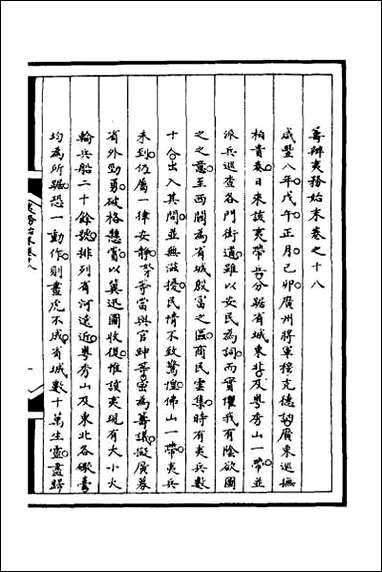 籌辦夷務始末卷之十八
咸豐八年戊午正月己卯廣州將軍穆克德訥廣東巡撫
柏貴奏日來該夷帶兵分踞省城東北及粵秀山一帶並
派兵巡查各門街道雖以安民為詞而實懼我有陰欲圖
之之意至西關為省城殷富之區商民雲集時有夷兵數
十合出入其間並無滋擾民情不致驚惶佛山一帶夷兵
未到佐屬一律安靜等當與官紳等密為籌議擬廣募
省外勁勇破格懸賞以冀迅圖收復惟該夷現有大小火
輪兵船二十餘號排列省河遠近粵秀山及東北各礮臺
均為所踞恐一動作則畫虎不成省城數十萬生靈盡歸
夷務始末卷十八
一